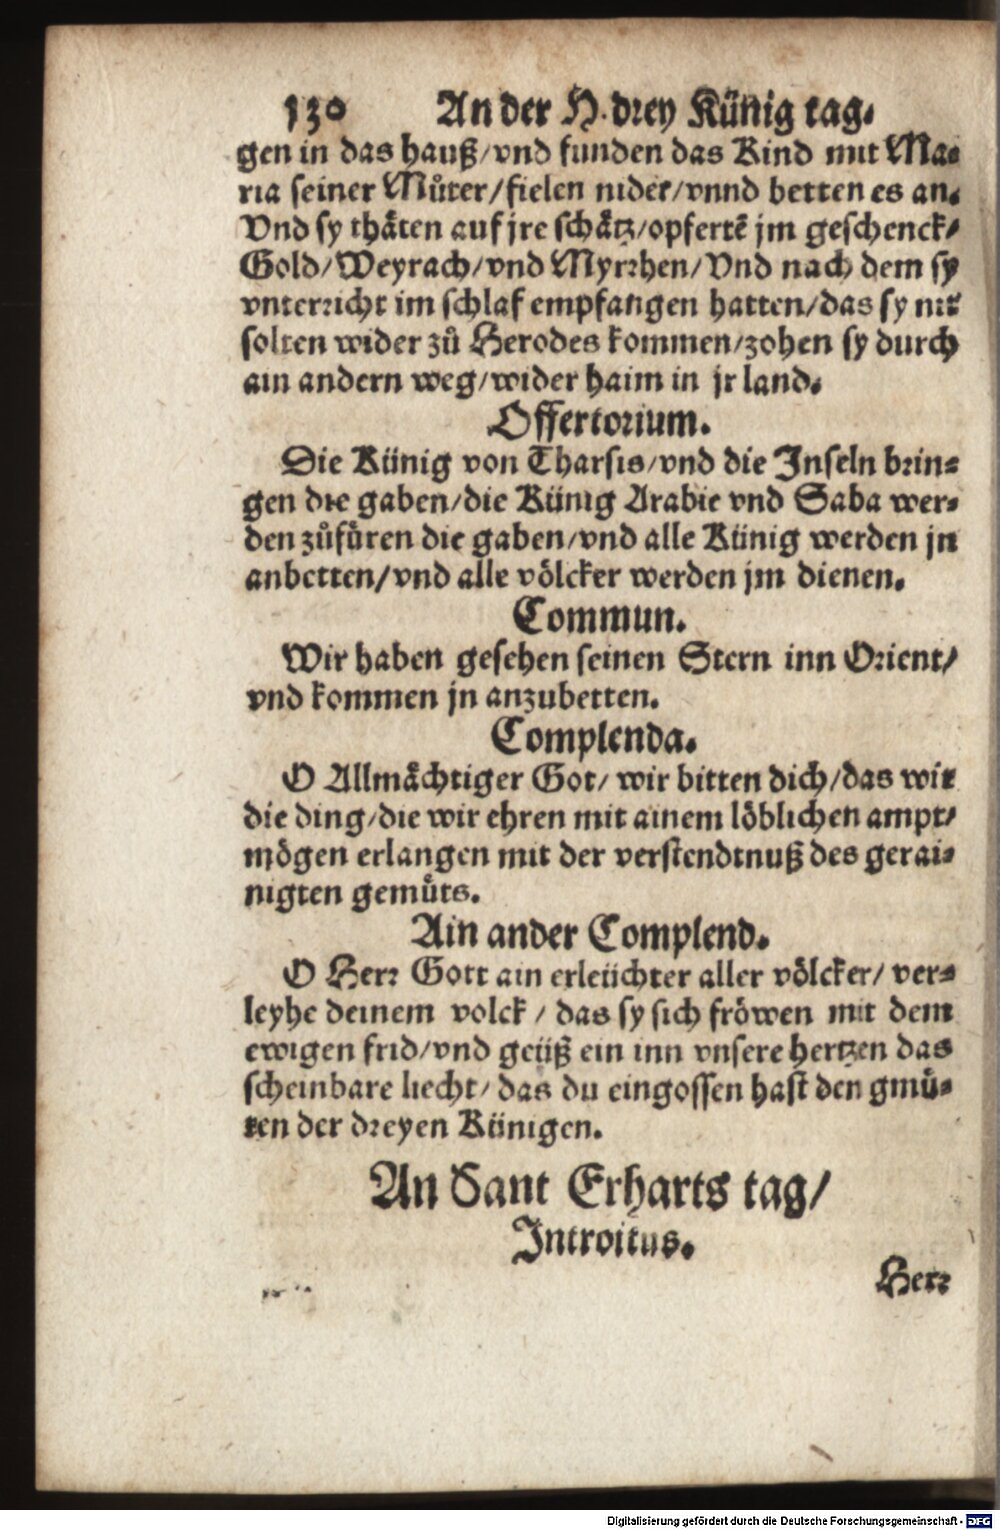 130 An der H. drey Künig tag.
gen in das hauß/vnd funden das Kind mit Ma⸗
ria seiner Můter/fielen nider/vnnd betten es an.
Vnd sy thåten auf jre schåtz/opfertē jm geschenck/
Gold/Weyrach/vnd Myrrhen/Vnd nach dem sy
vnterricht im schlaf empfangen hatten/das sy nit
solten wider zů Herodes kommen/zohen sy durch
ain andern weg/wider haim in jr land.
Offertorium.
Die Künig von Tharsis/vnd die Inseln brin⸗
gen die gaben/die Künig Arabie vnd Saba wer⸗
den zůfüren die gaben/vnd alle Künig werden jn
anbetten/vnd alle völcker werden jm dienen.
Commun.
Wir haben gesehen seinen Stern inn Orient/
vnd kommen jn anzubetten.
Complenda.
O Allmåchtiger Got/ wir bitten dich/das wir
die ding/die wir ehren mit ainem löblichen ampt/
mögen erlangen mit der verstendtnuß des gerai⸗
nigten gemůts.
Ain ander Complend.
O Herr Gott ain erleüchter aller völcker/ ver⸗
leyhe deinem volck / das sy sich fröwen mit dem
ewigen frid/vnd geüß ein inn vnsere hertzen das
scheinbare liecht/das du eingossen hast den gmů⸗
ten der dreyen Künigen.
An Sant Erharts tag/
Introitus.
Herr
Digitalisierung gefördert durch die Deutsche Forschungsgemeinschaft - DFG